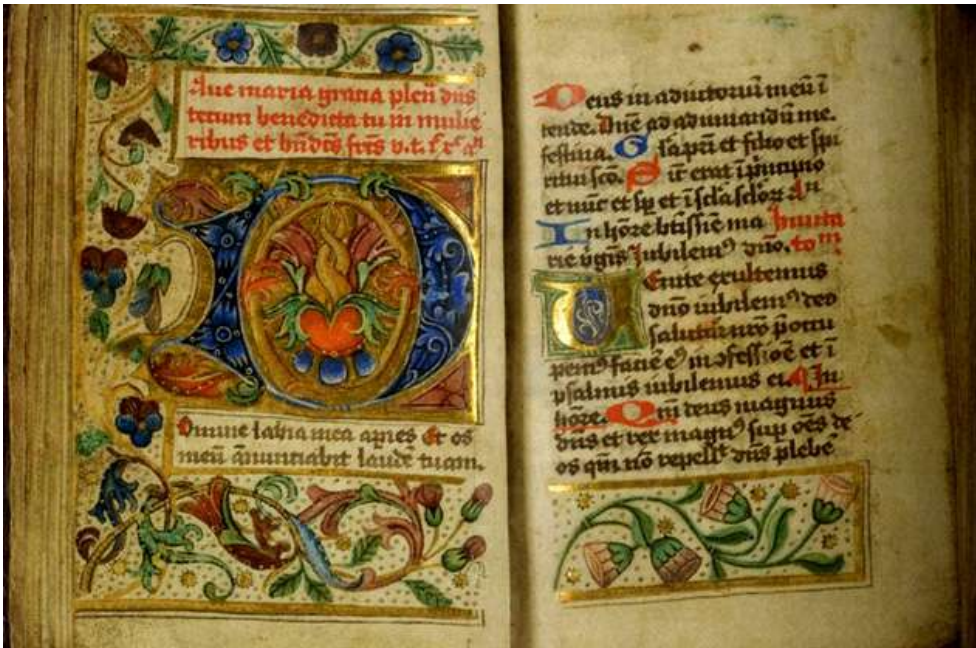 Aue maria gratia plen̄ dn̄s
tecum benedicta tu in mulie
ribus et bn̄dc̄s
Domine labia mea apries Et os
meū ānunciabit laudē tuam.
Deus in adiutoriū meū ī
tende. Dn̄e ad adiuuandū me.
festina. Gl̄a pr̄i et filio et sp̄i
ritui sc̄o. Sic̄ erat ī principio
et nūc et sp̄ et ī
In hōre btissīe ma
rie v̄gīs Iubilemꝰ dn̄o.
Uenite exultemus
dn̄o iubilemꝰ deo
salutari nr̄o p̄occu
pemꝰ faciē eꝰ ī ꝯfessiōe et ī
psalmis iubilemus ei. In
hōre. Qm̄ deus magnus
dn̄s et rex magnꝰ sup̄ oēs de
os qm̄ nō repell̄t dn̄s plebē